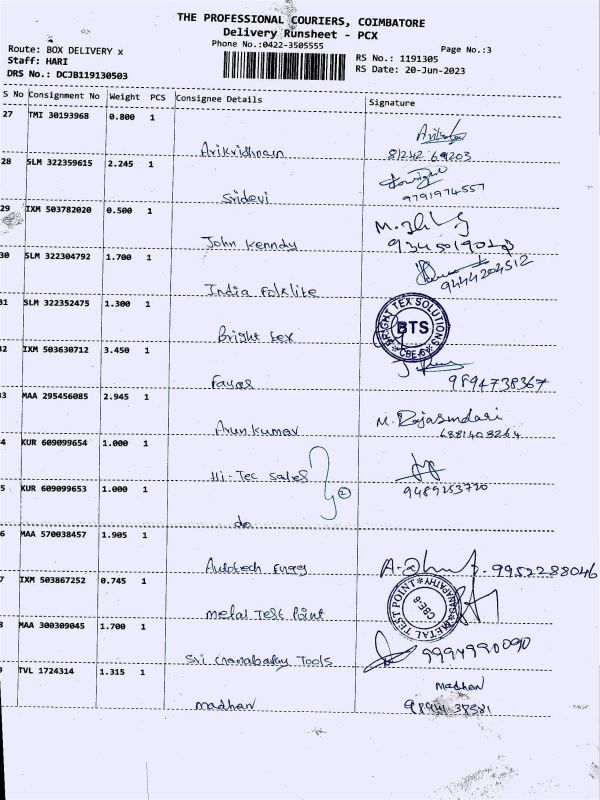 THE PROFESSIONAL COURIERS, COIMBATORE
Delivery Runsheet - PCX
Phone No.:0422-3505555
Page No.:3
Route: BOX DELIVERY x
Staff: HARI
DRS No.: DCJB119130503
RS No.: 1191305
RS Date: 20-Jun-2023
S No Consignment No Weight PCS Consignee Details Signature
27 TMI 30193968 0.800 1
Arikridhnan
81242 69203
28 SLM 322359615 2.245 1
Sridevi
9791974557
29 IXM 503782020 0.500 1
John Kenndy
30 SLM 322304792 1.700 1
India Folklite
9444204512
31 SLM 322352475 1.300 1
Bright tex
BRIGHT TEX SOLUTIONS
BTS
CBE-6
2 IXM 503630712 3.450 1
Fayas
9894738367
3 MAA 295456085 2.945 1
Arun Kumar
M. Rajasundari
4 KUR 609099654 1.000 1
Hi-Tec Sales
9489253720
5 KUR 609099653 1.000 1
②
do
6 MAA 570038457 1.905 1
Autotech Engg
9952288046
7 IXM 503867252 0.745 1
Metal Test Point
METAL TEST POINT
GANAPATHY
CBE-6
8 MAA 300309045 1.700 1
Sri Tools
9994990090
TVL 1724314 1.315 1
madhan
Madhan